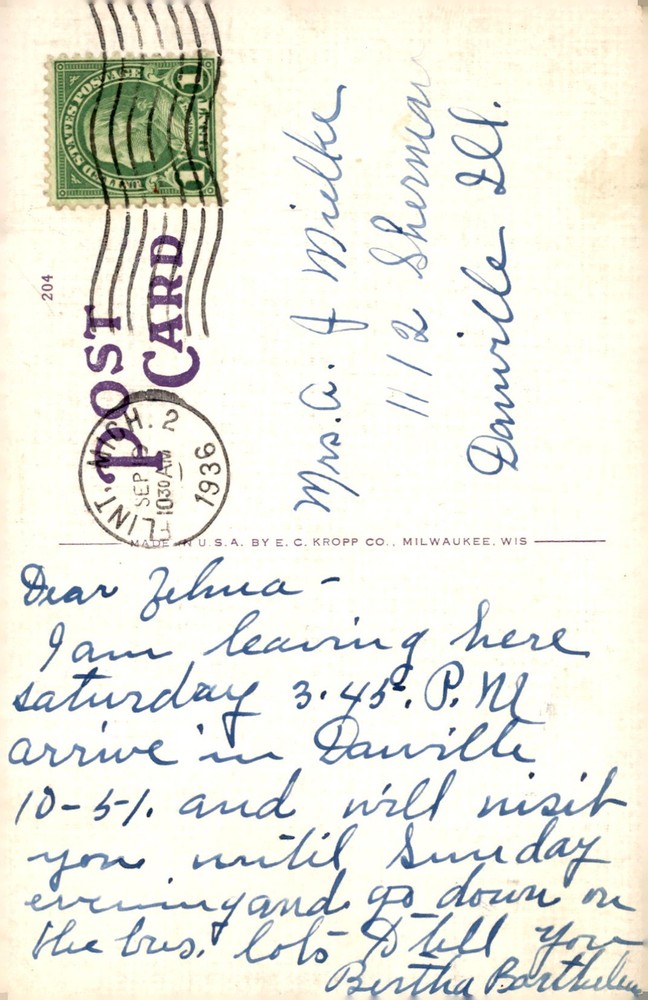 UNITED STATES POSTAGE
1 1
204
POST
CARD
FLINT, MICH. 2
SEP
10 30 AM
1936
Mrs. A. J Mielke
1112 Sherman
Danville Ill.
MADE IN U.S.A. BY E. C. KROPP CO., MILWAUKEE, WIS
Dear Zelma -
I am leaving here
saturday 3.45. P.M
arrive in Danville
10-51. and will visit
you until Sunday
evening and go down on
the bus. lots to tell you
Bertha